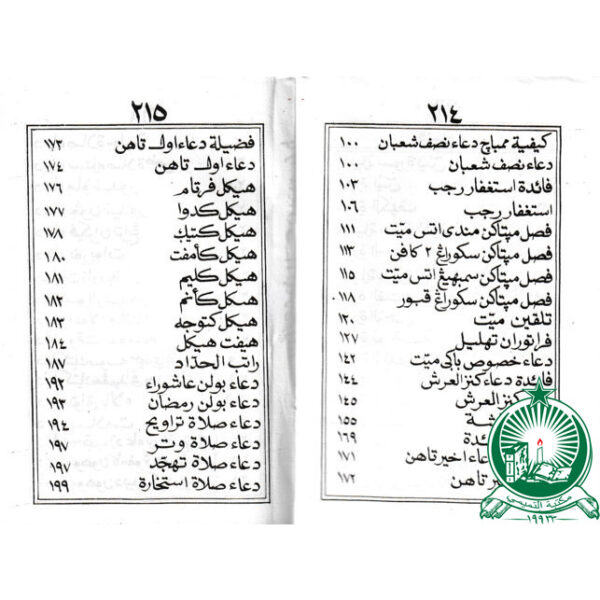 ٢١٤
كيفية ممباچ دعاء نصف شعبان ١٠٠
دعاء نصف شعبان ١٠٠
فائدة استغفار رجب ١٠٣
استغفار رجب ١٠٦
فصل مپتاكن مندي اتس ميّت ١١١
فصل مپتاكن سكوراڠ٢ كافن ١١٣
فصل مپتاكن سمبهيڠ اتس ميّت ١١٥
فصل مپتاكن سكوراڠ قبور ١١٨
تلقين ميّت ١٢٠
فراتوران تهليل ١٢٧
دعاء خصوص باكي ميّت ١٤٢
فائدة دعاء كنز العرش ١٤٤
كنز العرش ١٤٥
١٥٥
ئدة ١٦٩
عاء اخير تاهن ١٧١
ير تاهن ١٧٢
مكتبة التميمي
١٩٩٣
٢١٥
فضيلة دعاء اول تاهن ١٧٣
دعاء اول تاهن ١٧٤
هيكل فرتام ١٧٦
هيكل كدوا ١٧٧
هيكل كتيك ١٧٨
هيكل كأمفت ١٨٠
هيكل كليم ١٨١
هيكل كأنم ١٨٢
هيكل كتوجه ١٨٣
هيفت هيكل ١٨٤
راتب الحدّاد ١٨٧
دعاء بولن عاشوراء ١٩٢
دعاء بولن رمضان ١٩٣
دعاء صلاة تراويح ١٩٤
دعاء صلاة وتر ١٩٧
دعاء صلاة تهجّد ١٩٧
دعاء صلاة استخارة ١٩٩